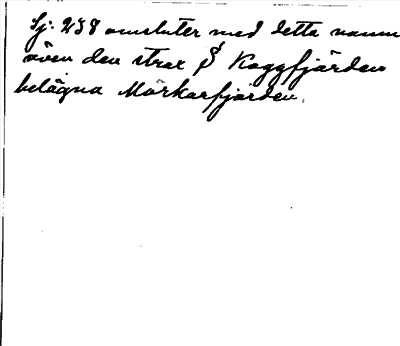 Sj. 238 omsluter med detta namn
även den strax S Kaggfjärden
belägna Mörkarfjärden.